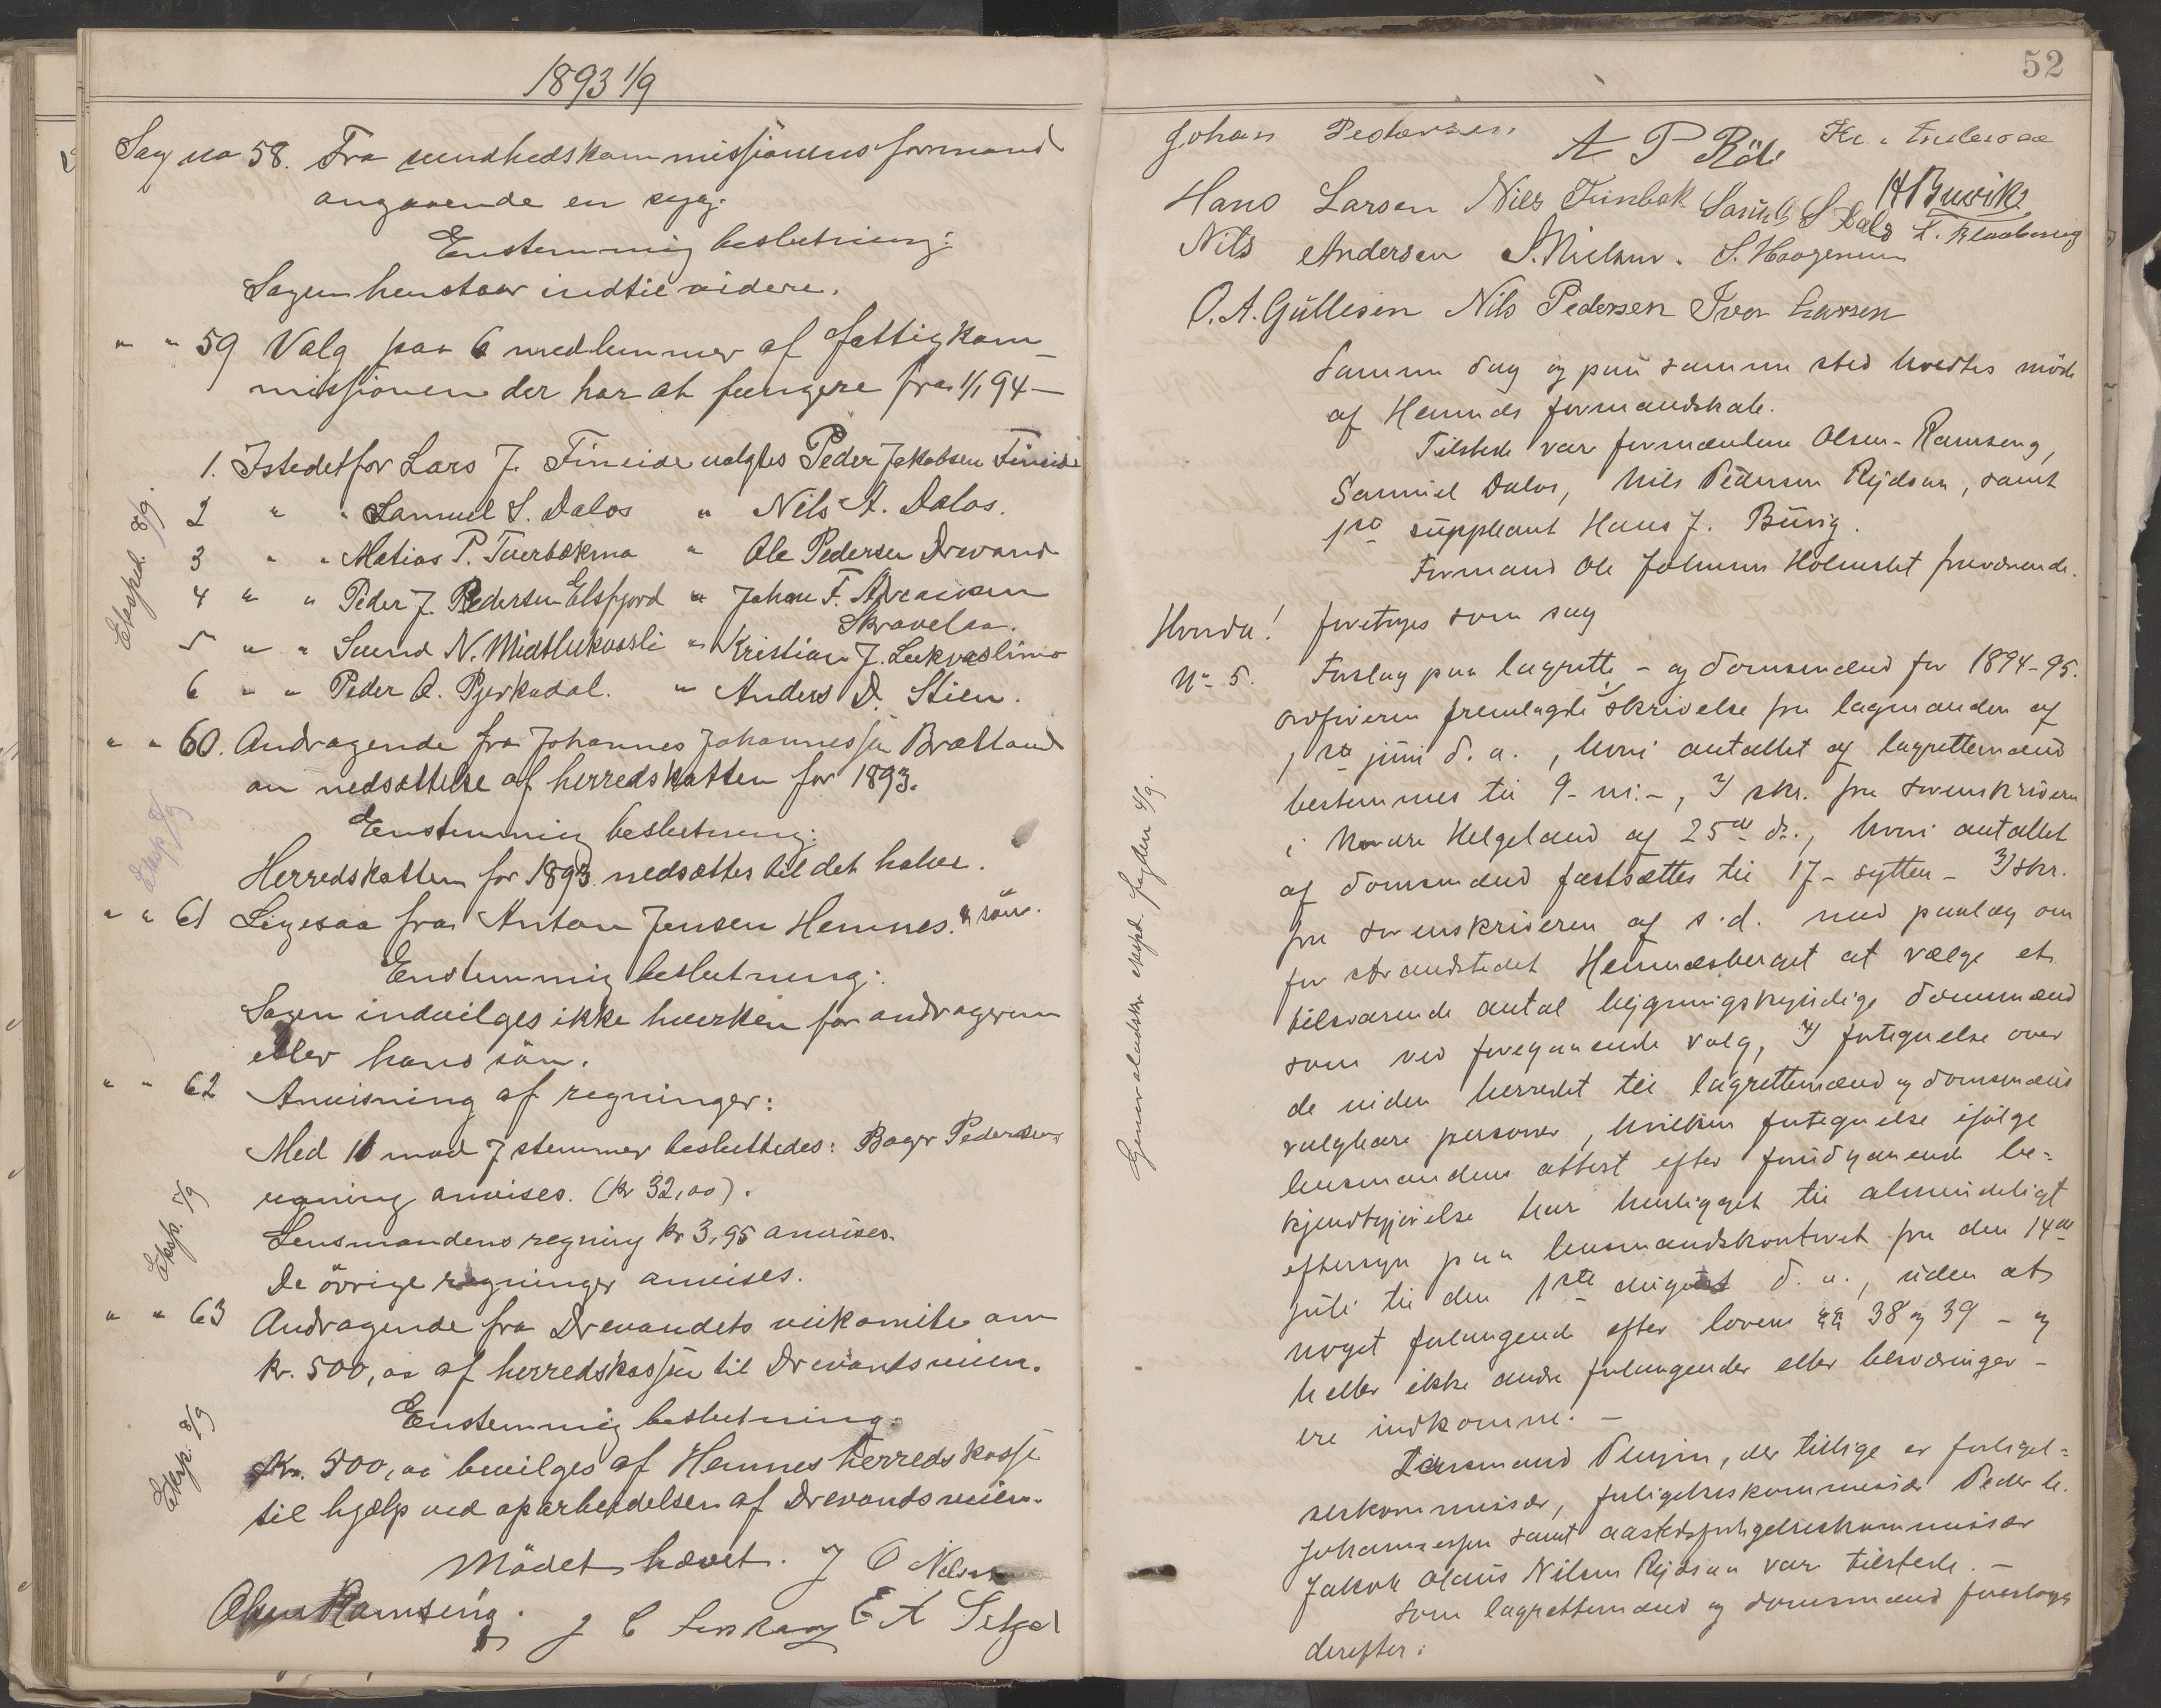 1893 1/9
Sag no 58. Fra sundhedskommissjonens formand
angaaende en syg.
Enstemmig beslutning:
Sagen henstaar indtil videre.
" " 59 Valg paa 6 medlemmer af fattigkom-
missjonen der har at fungere fra 1/1 94 —
1. Istedetfor Lars J. Fineide valgtes Peder Jakobsen Fineide
2 " " Samuel S. Dalos " Nils A. Dalos.
3 " " Matias P. Tverbækmo " Ole Pedersen Drevand
4 " " Peder J. Pedersen Elsfjord " Johan F.
Skravelaa.
5 " " Svend N. Midtlukvasli " Kristian J. Lukvaslimo
6 " " Peder A. Bjerkadal. " Anders D. Stien.
Eksped. 8/9.
" " 60. Andragende fra Johannes Johannessen Brætland
om nedsættelse af herredskatten for 1893.
Enstemmig beslutning:
Herredskatten for 1893 nedsættes til det halve.
Eksp. 8/9
" " 61 Ligesaa fra Anton Jensen Hemnes. & søn.
Enstemmig beslutning:
Sagen indvilges ikke hverken for andrageren
eller hans søn.
" " 62 Anvisning af regninger:
Med 11 mod 7 stemmer besluttedes: Bager Pedersens
regning anvises. (kr 32,00).
Lensmandens regning kr 3,95 anvises.
De övrige regninger anvises.
Eksp. 5/9
" " 63 Andragende fra Drevandets veikomite om
kr. 500,00 af herredskassen til Drevandsveien.
Enstemmig beslutning:
Kr. 500,00 bevilges af Hemnes herredskasse
til hjælp ved oparbeidelsen af Drevandsveien.
Eksp. 8/9
Mödet hævet. J O Nilsen
Olsen Ramseng. J C E A Setzel
52
Johan Pedersen A P Röd
Hans Larsen Nils Finbak Samuel S Dalos H Burik
Nils Andersen S. Nielsen. S. Haagensen
O. A. Gullesen Nils Pedersen Iver Larsen
Samme dag og paa samme sted holdtes möde
af Hemnes formandskab.
Tilstede var formændene Olsen-Ramseng,
Samuel Dalos, Nils Pedersen Röjdsaa, samt
1ste suppleant Hans J. Burig.
Formand Ole Johnsen Holmslet fraværende.
Hvorda! foretoges som sag
No 5. Forslag paa lagrette- og domsmænd for 1894-95.
Ordføreren fremlagde 1/ skrivelse fra lagmanden af
1ste juni d. a., hvori antallet af lagrettemænd
bestemmes til 9 - ni. -, 2/ skr. fra sorenskriveren
i Nordre Helgeland af 25de ds., hvori antallet
af domsmænd fastsættes til 17 - sytten - 3/ skr.
fra sorenskriveren af s. d. med paalæg om
for strandstedet Hemnesberget at vælge et
tilsvarende antal bygningskyndige domsmænd
som ved foregaaende valg, 4/ fortegnelse over
de inden herredet til lagrettemænd og domsmænd
valgbare personer, hvilken fortegnelse ifølge
lensmandens attest efter forudgaaende be-
kjendtgjörelse har henligget til almindeligt
eftersyn paa lensmandskontoret fra den 14de
juli til den 1ste august d. a., uden at
noget forlangende efter lovens §§ 38 og 39 - og
heller ikke andre forlangender eller besværinger -
ere indkomne. -
Lensmand, der tillige er forligel-
seskommissær, forligelseskommissær Peder H.
Johannessen samt aastedsforligelseskommissær
Jakob Olaus Nilsen Röjdsaa var tilstede. -
Som lagrettemænd og domsmænd foresloges
derefter:
Genneraludskr. eksped. fogden 4/9.